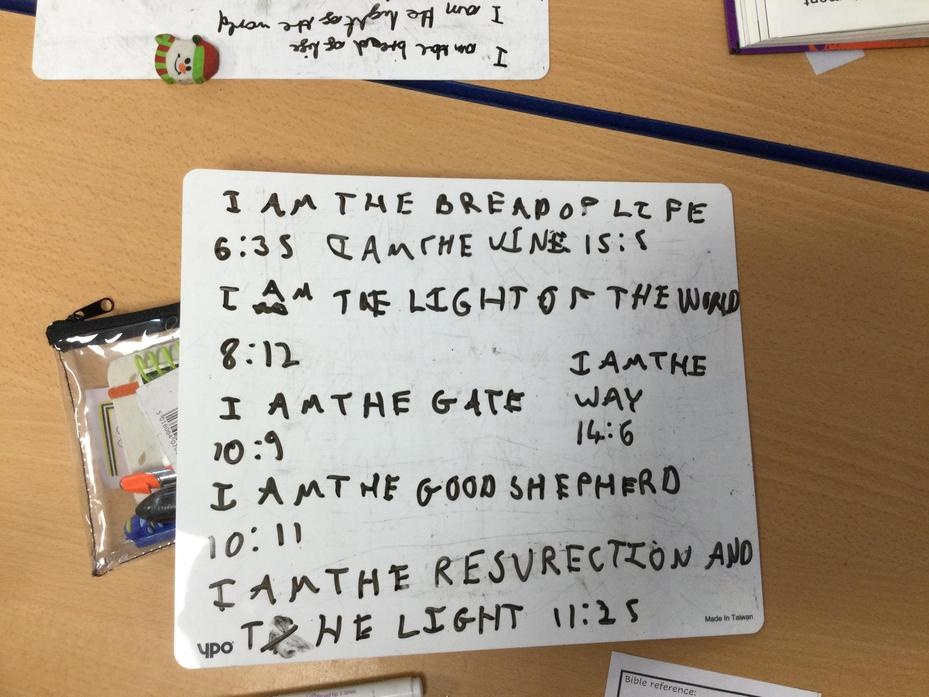 I am the light of the world
I am the bread of life
I AM THE BREAD OF LIFE
6:35 I AM THE VINE 15:5
I AM THE LIGHT OF THE WORLD
8:12
I AM THE
WAY
14:6
I AM THE GATE
10:9
I AM THE GOOD SHEPHERD
10:11
I AM THE RESURECTION AND
THE LIGHT 11:25
ypo
Made In Taiwan
Bible reference: